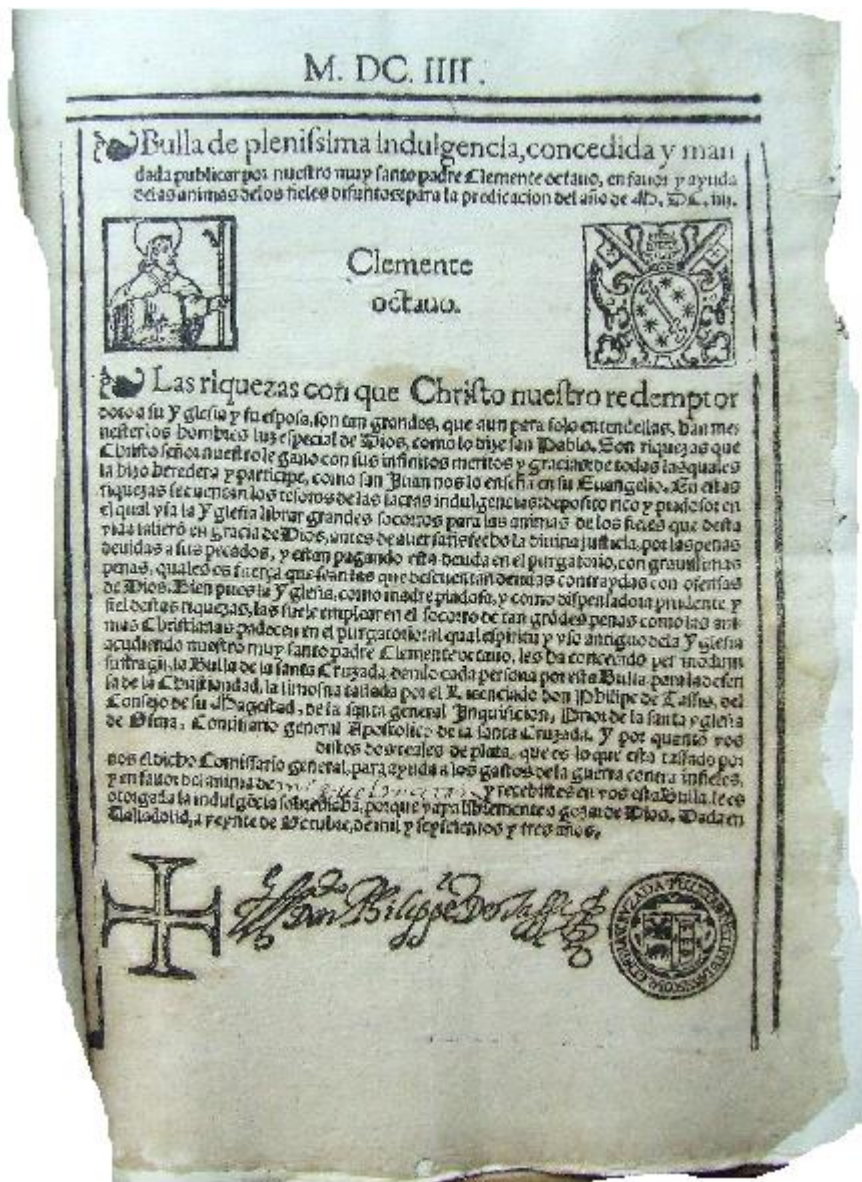 M. DC. IIII.
Bulla de plenissima indulgencia, concedida y man
dada publicar por nuestro muy santo padre Clemente octauo, en fauor y ayuda
de las animas de los fieles difuntos: para la predicacion del año de M. DC. iiij.
Clemente
octauo.
Las riquezas con que Christo nuestro redemptor
doto a su Yglesia y su esposa, son tan grandes, que aun para solo entendellas, han me
nester los hombres luz especial de Dios, como lo dize san Pablo. Son riquezas que
Christo señor nuestro le gano con sus infinitos meritos y gracias: de todas las quales
la hizo heredera y participe, como san Juan nos lo enseña en su Euangelio. En estas
riquezas se cuentan los tesoros de las sacras indulgencias: deposito rico y piadoso: en
el qual usa la Yglesia librar grandes socorros para las animas de los fieles que desta
vida salieron en gracia de Dios, antes de auer satisfecho la diuina justicia, por las penas
deuidas a sus pecados, y estan pagando esta deuda en el purgatorio, con grauissimas
penas, quales es fuerça que sean las que descuentan deudas contraydas con ofensas
de Dios. Bien pues la Yglesia, como madre piadosa, y como dispensadora prudente y
fiel destas riquezas, las suele emplear en el socorro de tan grādes penas como las ani
mas Christianas padecen en el purgatorio: al qual espiritu y vso antiguo de la Yglesia
acudiendo nuestro muy santo padre Clemente octauo, les ha concedido per modum
suffragij, la Bulla de la santa Cruzada, dando cada persona por esta Bulla para la defen
sa de la Christiandad, la limosna tassada por el Licenciado don Philipe de Tassis, del
Consejo de su Magestad, de la santa general Inquisicion, Prior de la santa yglesia
de Osma, Comissario general Apostolico de la santa Cruzada. Y por quanto vos
distes dos reales de plata, que es lo que esta tassado por
nos el dicho Comissario general, para ayuda a los gastos de la guerra contra infieles,
y en fauor del anima de y recebistes en vos esta Bulla, le es
otorgada la indulgēcia sobredicha, porque vaya libremente a gozar de Dios. Dada en
Valladolid, a veynte de Octubre, de mil y seyscientos y tres años.
Don Philippe De Tassis